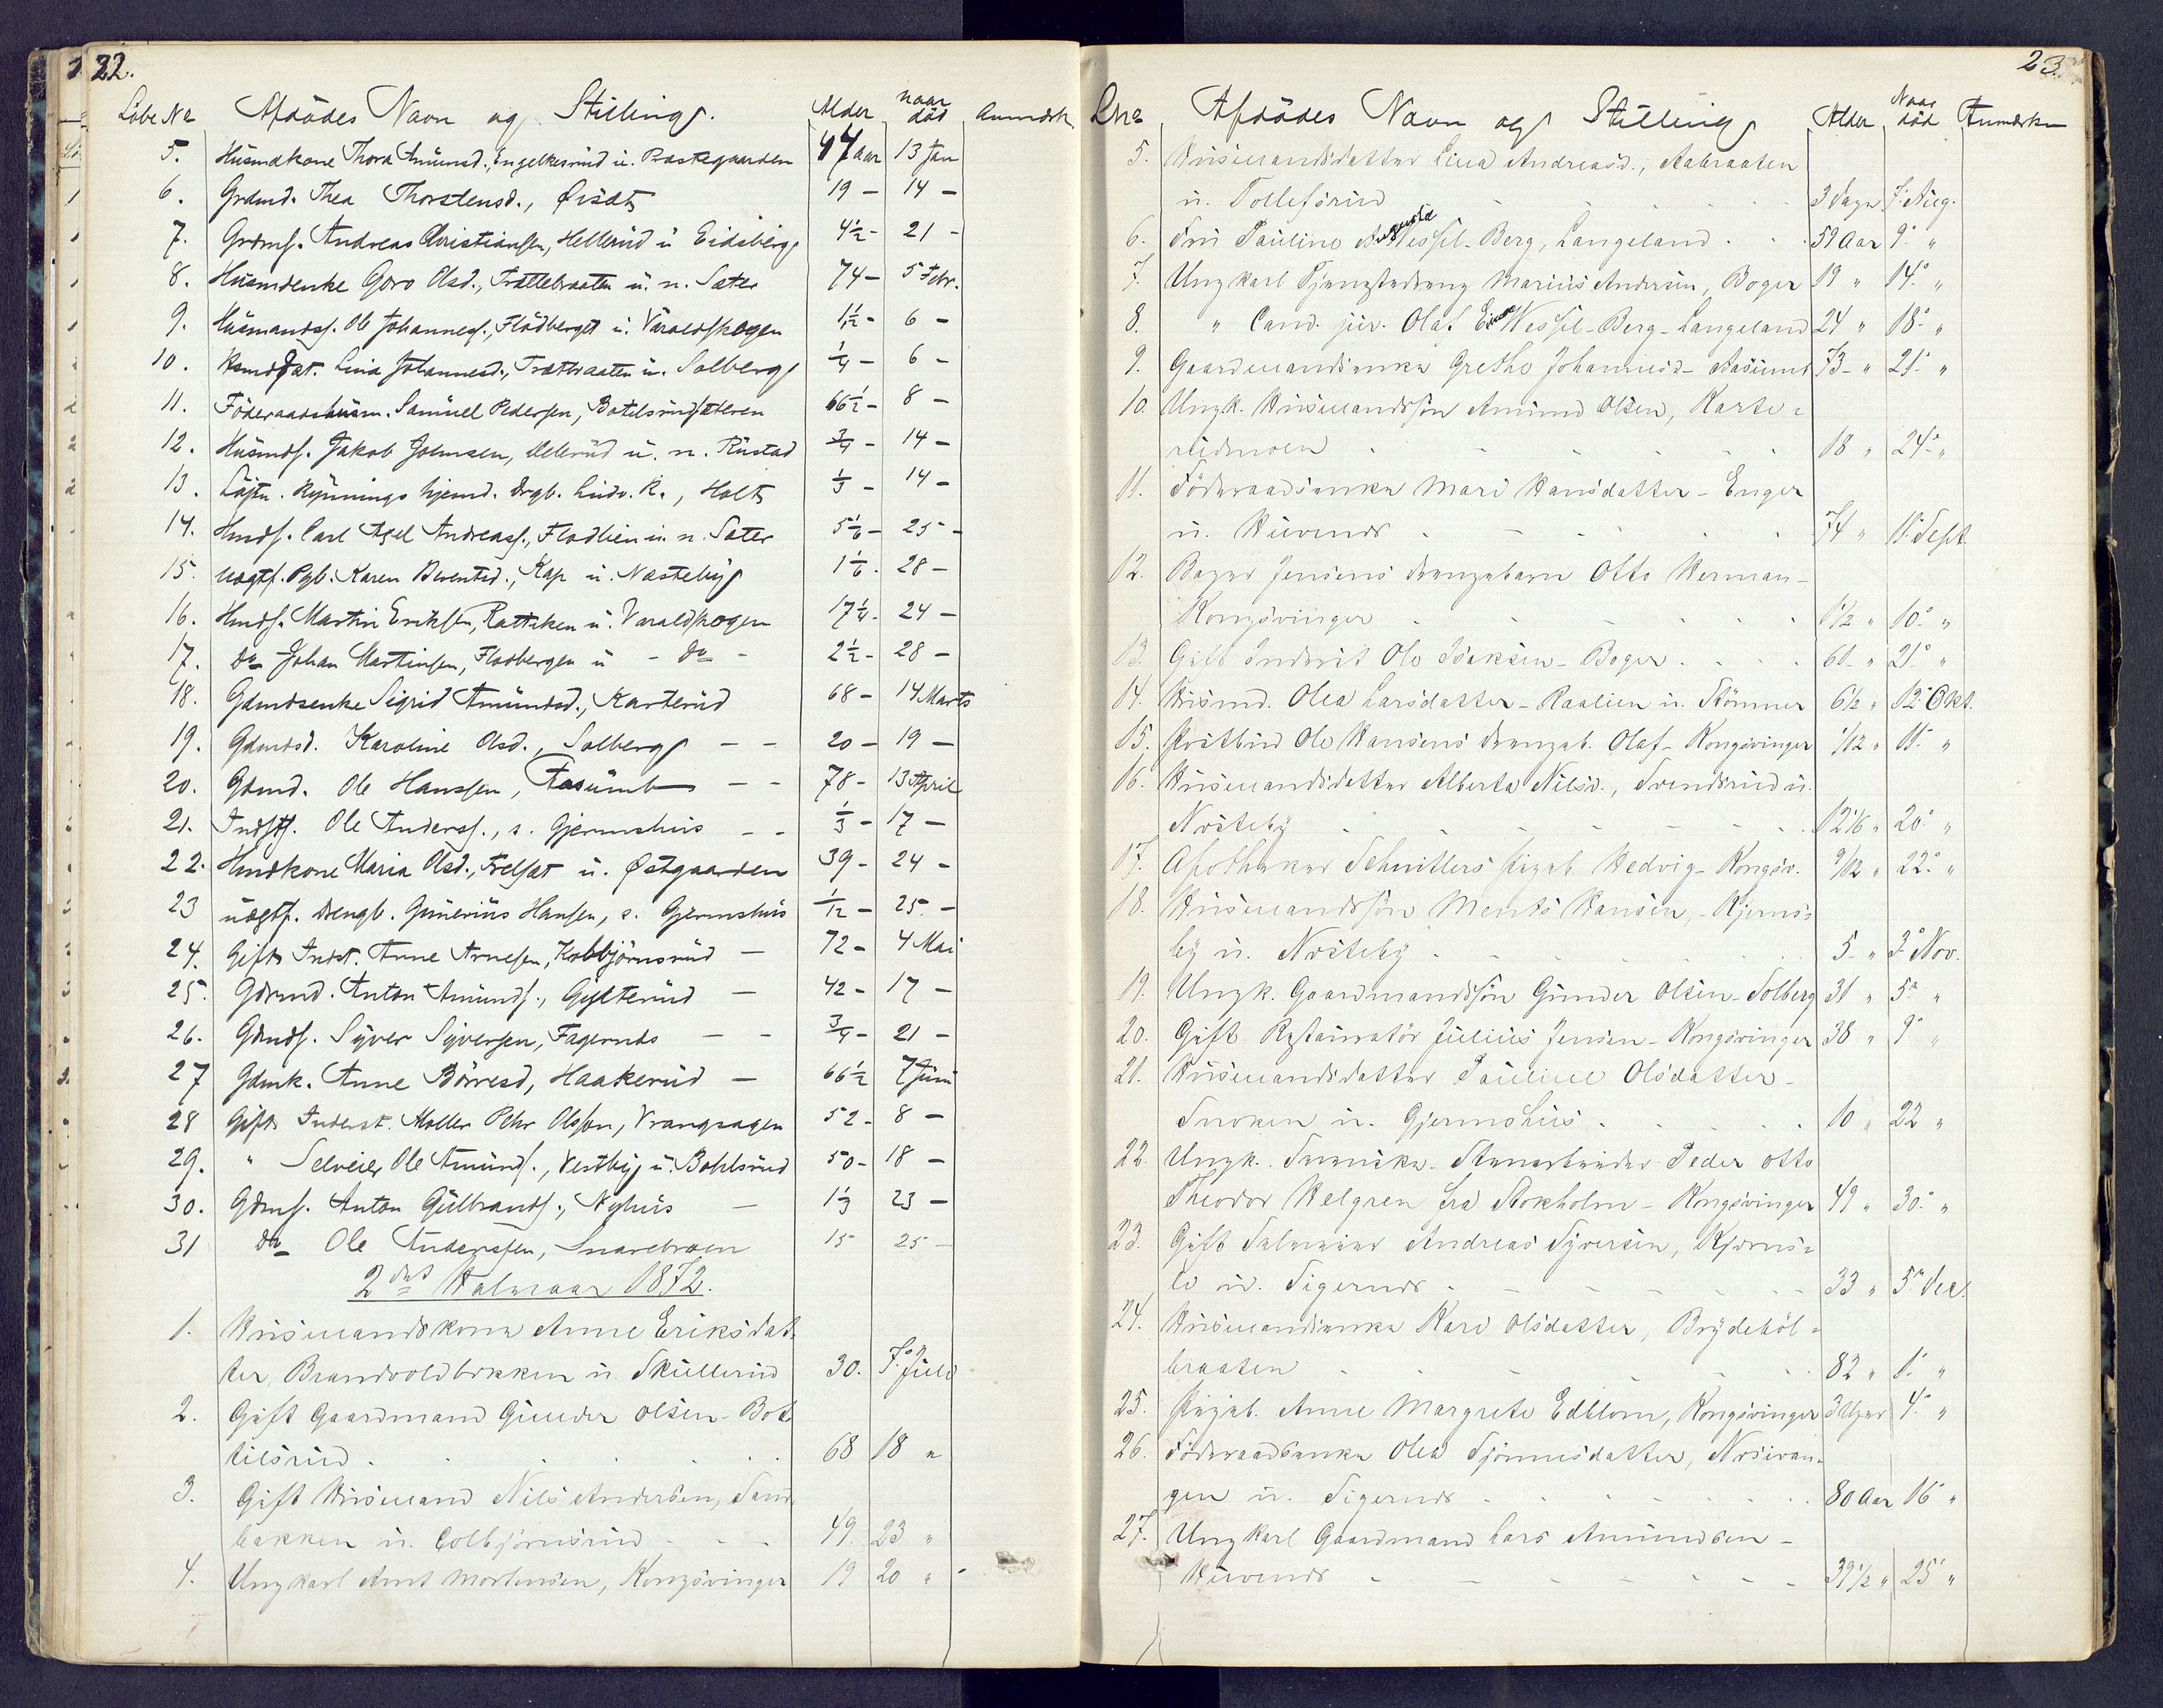 22.
Löbe No Afdödes Navn og Stilling. Alder naar död Anmærk.
5. Husmdkone Thora Amunsd., Engelkesrud u. Præstegaarden 47 aar 13 Jan
6. Grdmd. Thea Thorstensd., Øiset 19 – 14 –
7. Grdms. Andreas Christiansen, Hellerud u Eidsberg 4½ – 21 –
8. Husmdenke Goro Olsd., Trættebraaten u. n. Sæter 74 – 5 Febr.
9. Husmandss. Ole Johanness., Flödberget u. Varaldskogen 1 1/12 – 6 –
10. Hsmddat. Lina Johannesd., Trætbraaten u. Solberg ¼ – 6 –
11. Föderaadshusm. Samuel Pedersen, Botilsrudsæteren 66½ – 8 –
12. Husmds. Jakob Johnsen, Ullerud u. n. Rustad ¾ – 14 –
13. Löjtn. Kynnings hjemd. drgb. Ludv. K., Holt ⅓ – 14 –
14. Hmds. Carl Axel Andreass., Flodlien u. n. Sæter 5⅙ – 25 –
15. uægtf. Pgb. Karen Berentsd., Kap u. Næsteby 1⅙ . 28 –
16. Hmds. Martin Eriksen, Rattiken u. Varaldskogen 17¼ – 24 –
17. Do Johan Martinsen, Flodbergen u – do – 2½ – 28 –
18. Gdmdsenke Sigrid Amundsd., Karterud 68 – 14 Marts
19. Gdmdsd. Karoline Olsd., Solberg – – 20 – 19 –
20. Gdmd. Ole Hanssen, Aasum – – 78 – 13 April
21. Indsts. Ole Anderss., s. Gjermshus – – ⅓ – 17 –
22. Hmdkone Maria Olsd., Frelsæt u. Østgaarden 39 – 24 –
23 uægtf. drengb. Gunerius Hansen, s. Gjermshus 1/12 – 25. –
24. Gift Indst. Arne Arnesen, Kobbjörnsrud – 72 – 4 Mai
25. Gdmd. Anton Amunds., Gylterud – 42 – 17 –
26. Gdmds. Syver Syversen, Fagernæs – – ¾ – 21 –
27 Gdmk. Anne Börresd, Haakerud – 66½ 7 Juni
28 Gift Inderst. Møller Pehr Olsson, Vrangsagen 52 – 8 –
29. " Selveier Ole Amunds., Vestby u. Bohlsrud 50 – 18 –
30. Gdms. Anton Gulbrands., Nyhus – 1⅓ 23 –
31 Do Ole Anderssen, Snarebroen 15 25 –
2det Halvaar 1872.
1. Husmandskone Anne Eriksdat-
ter, Brandvoldbækken u. Skullerud 30. 7° Juli
2. Gift Gaardmand Gunder Olsen - Bot-
tilsrud . . . . . . 68 18 "
3. Gift Husmand Nils Andersen, Sand-
bakken u. Colbjörnsrud - - - 49. 23 "
4. Ungkarl Amt Mortensen, Kongsvinger 19 20 "
23.
Lno Afdödes Navn og Stilling Alder Naar död Anmærkn
5. Husmandsdatter Lina Andreasd., Aabraaten
u. Tollefsrud . . . . . 3 Dage 7. Aug.
6. Fru Pauline Augusta Wessel-Berg, Langeland . . . 59 Aar 9° "
7. Ungkarl Tjenestedreng Marius Andersen, Boger 19 " 14° "
8. " Cand. jur. Olaf Wessel-Berg - Langeland 24 " 18° "
9. Gaardmandsenke Grethe Johannesd - Aasum 73 – " 21° "
10. Ungk. Husmandssön Amund Olsen, Karte-
rudmoen . . . . . 18 " 24° "
11. Föderaadsenke Mari Hansdatter - Enger
u. Huvenes . – – . . 74 " 11° Sept.
12. Bager Jensens drengebarn Otto Herman -
Kongsvinger . . . . . 1½ " 10° "
13. Gift Inderst Ole Isaksen - Boger . . . 61 – " 21° "
14. Husmd. Olea Larsdatter - Raalien u. Stömner 6½ " 12° Okt.
15. Postbud Ole Hansens drengeb. Olaf - Kongsvinger 1/12 " 11° "
16. Husmandsdatter Alberta Nilsd., Svendsrud u.
Næsteby . – – – – 12⅙ " 20° "
17. Apotheker Schnitlers pigeb. Hedvig - Kongsv. 9/12 " 22° "
18. Husmandssön Ments Hansen, - Kjerns-
by u. Næsteby . . . . 5 – " 3° Nov.
19. Ungk. Gaardmandssön Gunder Olsen - Solberg 31 " 5° "
20. Gift Restauratör Julius Jensen - Kongsvinger 38 " 9° "
21. Husmandsdatter Pauline Olsdatter -
Snoken u. Gjermshus . . . . . 10 " 22 "
22. Ungk. Svenske Stenarbeider Peder Otto
Theodor Helgren fra Stokholm - Kongsvinger 49 " 30° "
23. Gift Selveier Andreas Syversen, Kjerns-
li u. Sigernæs - – – – – 33 " 5° Dec.
24. Husmandsenke Kari Olsdatter, Brydeböl-
braaten . . – – – 82 " 1° "
25. Pigeb. Anne Margrete Edblom, Kongsvinger 3 Uger 4° "
26. Föderaadsenke Olea Sjönnesdatter, Næsvan-
gen u. Sigernæs . . . . . 80 Aar 16 "
27. Ungkarl Gaardmand Lars Amundsen -
Huvenes – – – – – 39½ " 25 "